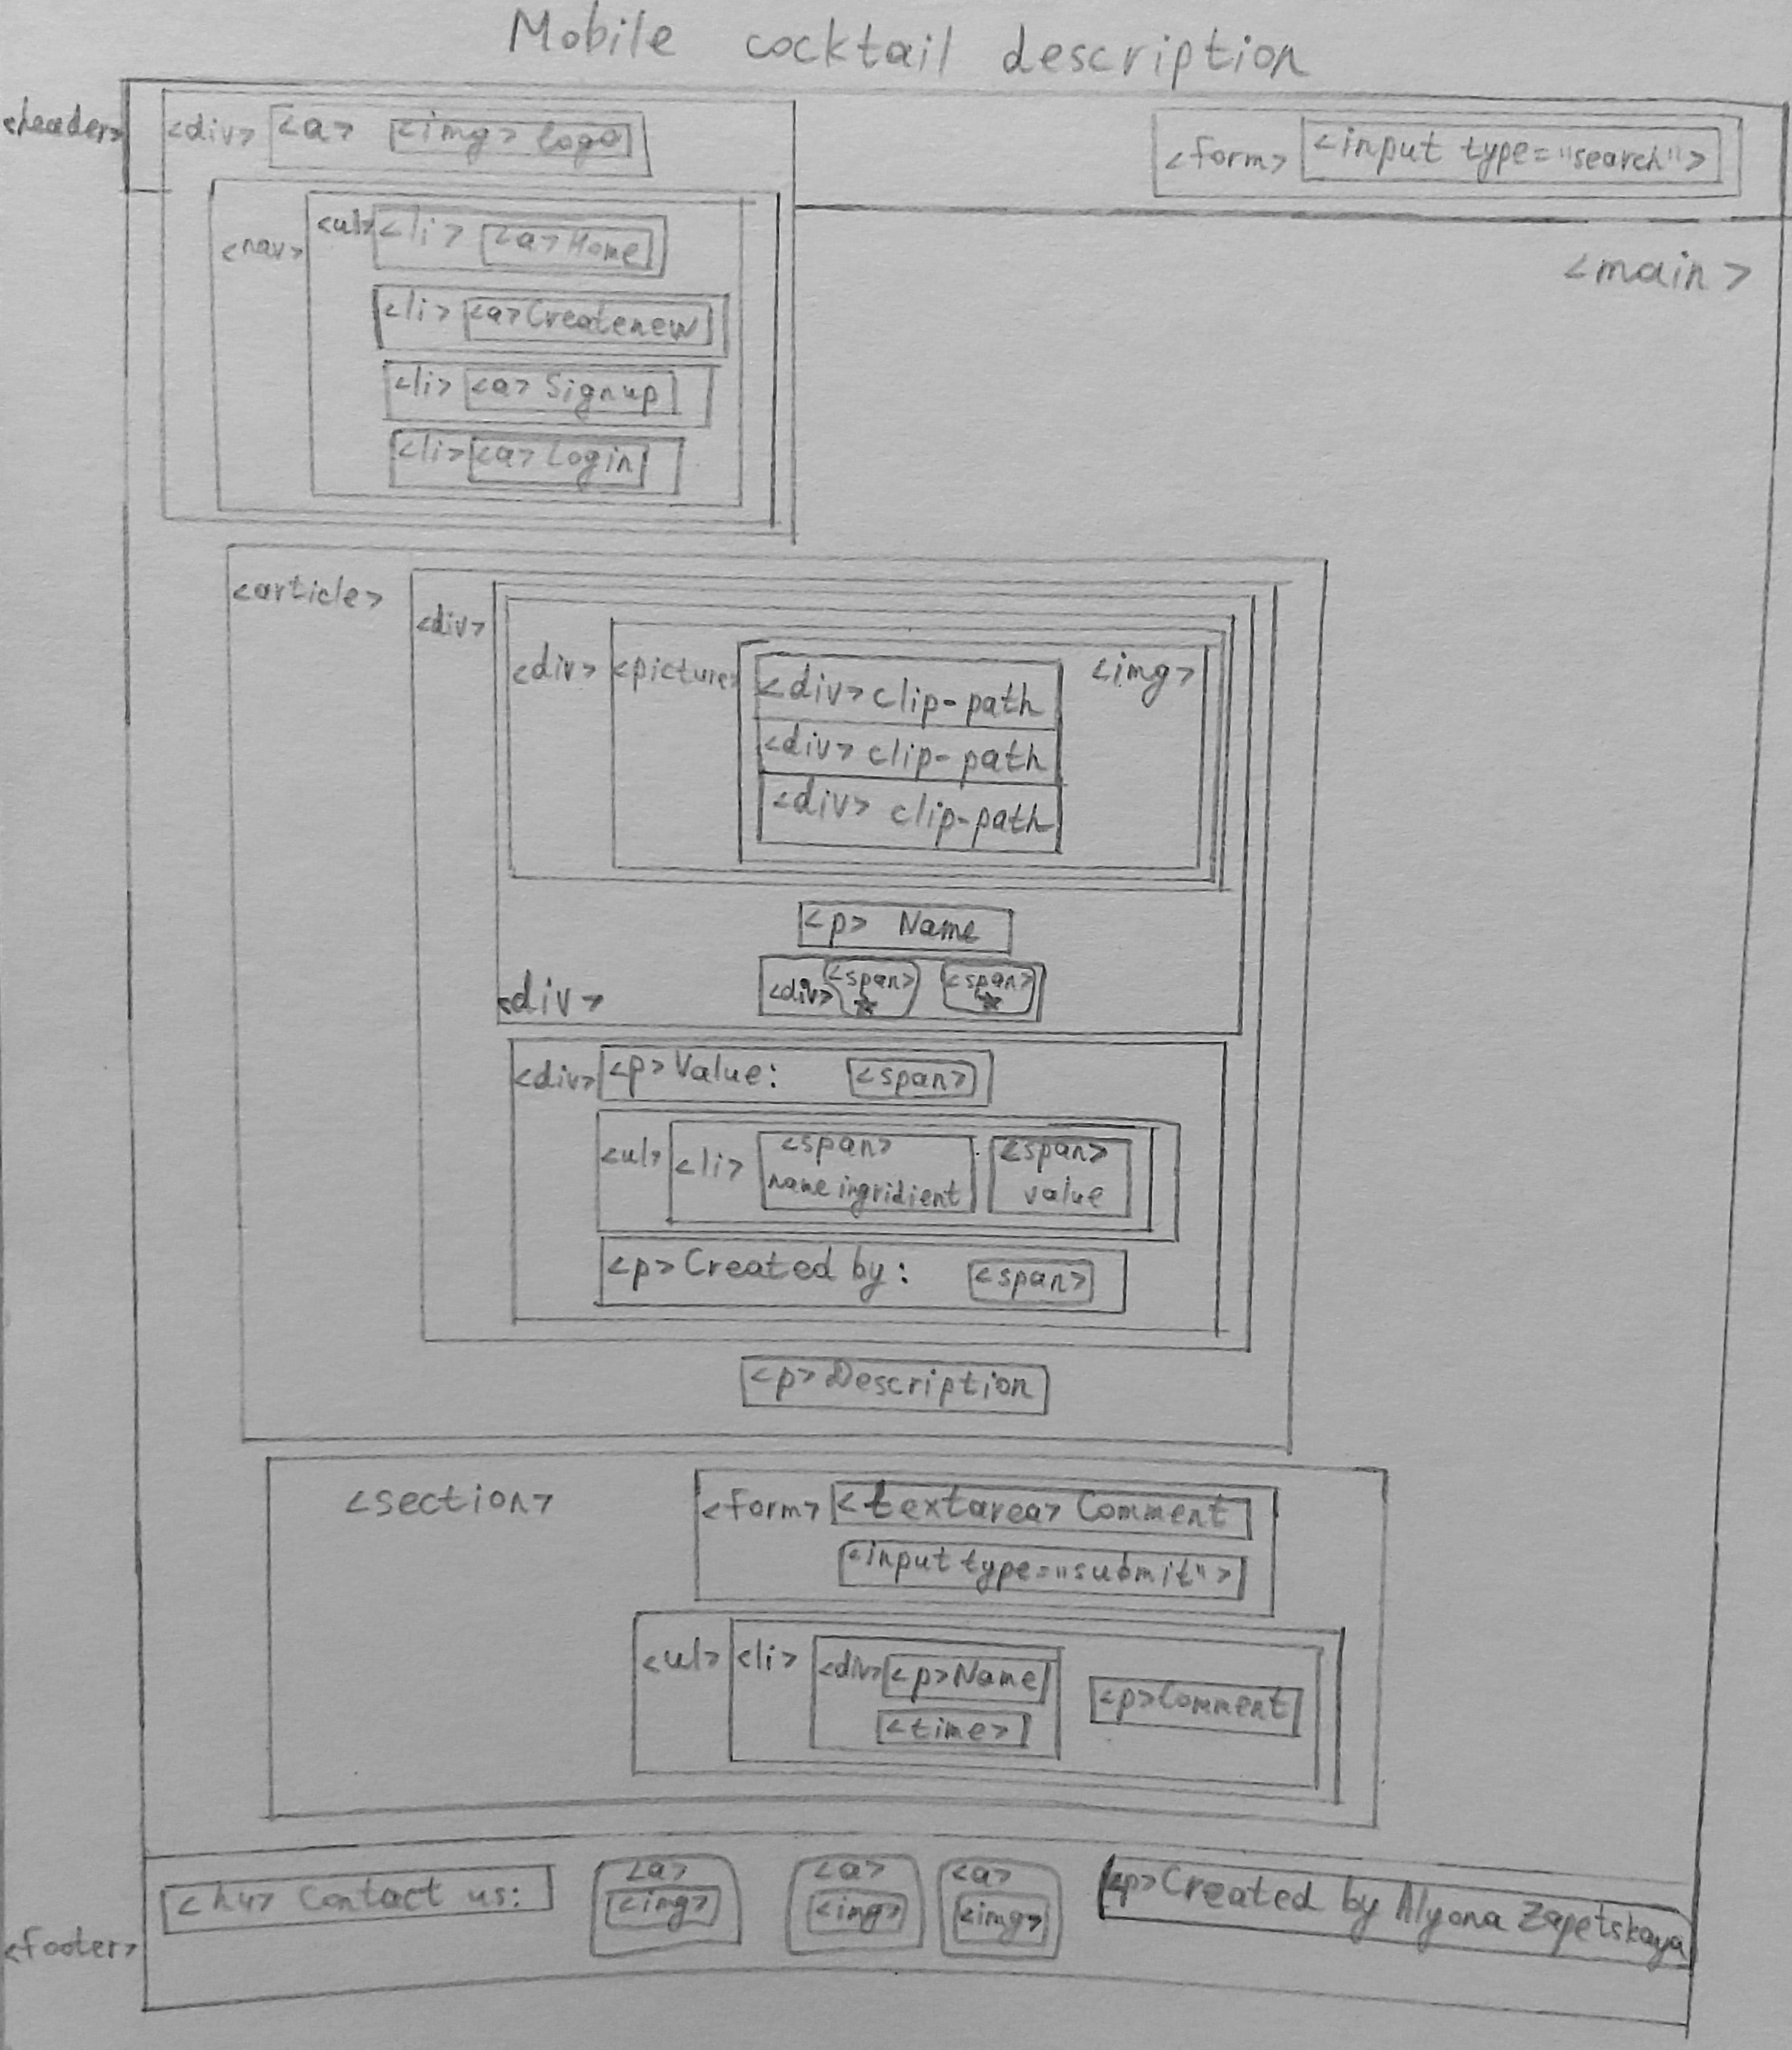 Mobile cocktail description
<header>
<div> <a> <img> logo
<form> <input type="search">
<nav> <ul> <li> <a> Home
<main>
<li> <a> Createnew
<li> <a> Signup
<li> <a> Login
<article>
<div>
<div> <picture> <div> clip-path <img>
<div> clip-path
<div> clip-path
<p> Name
<div> <div> <span> <span>
<div> <p> Value: <span>
<ul> <li> <span> <span>
name ingridient value
<p> Created by: <span>
<p> Description
<section> <form> <textarea> Comment
<input type="submit">
<ul> <li> <div> <p> Name
<p> Comment
<time>
<a> <a> <a>
<h4> Contact us: <img> <img> <img> <p> Created by Alyona Zapetskaya
<footer>